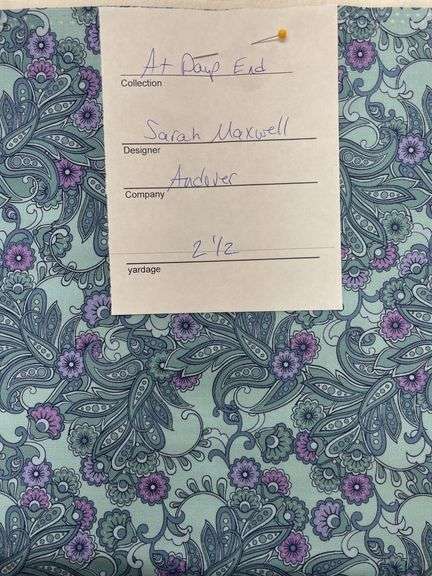 At Days End
Collection
Sarah Maxwell
Designer
Andover
Company
2 1/2
yardage